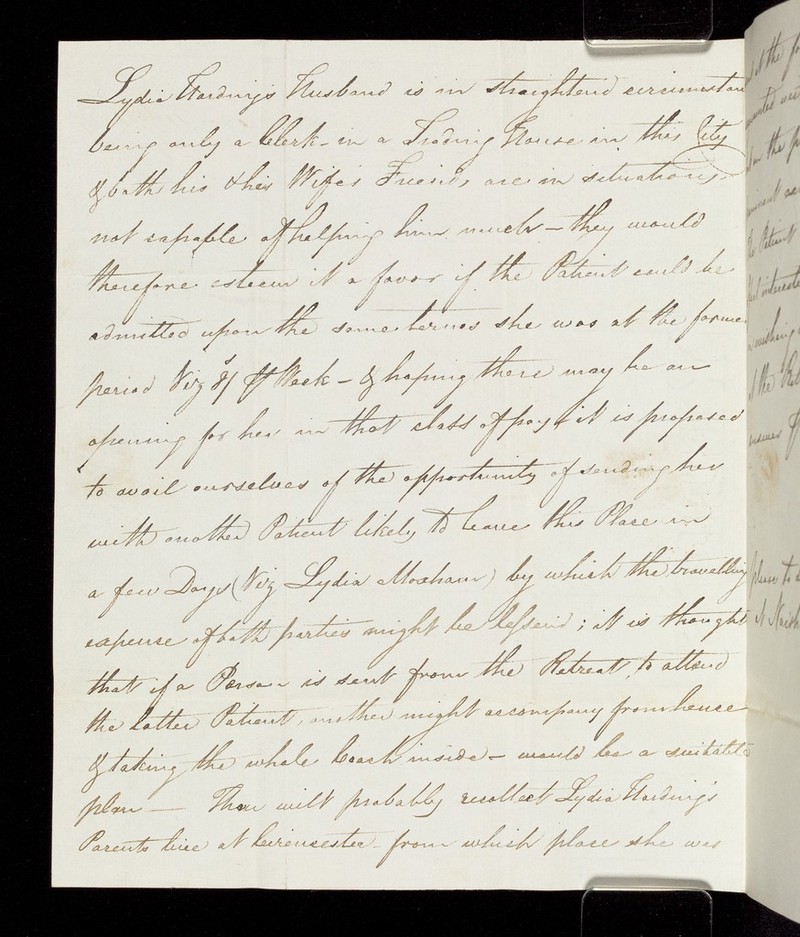 Lydia Harding's Husband is in straighten'd circumstan
being only a Clerk - in a Trading House in this City
& both his & his Wife's Friends are in situations
not capable of helping him much - they would
therefore esteem it a favor if the Patient could be
admitted upon the same terms she was at the former
period Viz 8/ P Week - & hoping there may be an
opening for her in that class of pay, it is proposed
to avail ourselves of the opportunity of sending her
with another Patient likely to leave this Place in
a few Days (Viz Lydia Moxham) by which the travelling
expense of both parties might be lessen'd; it is thought
that if a Person is sent from the Retreat, to attend
the latter Patient, another might accompany from hence
& taking the whole Coach inside - would be a suitable
plan — Thou wilt probably recollect Lydia Harding's
Parents live at Cirencester - from which place she was